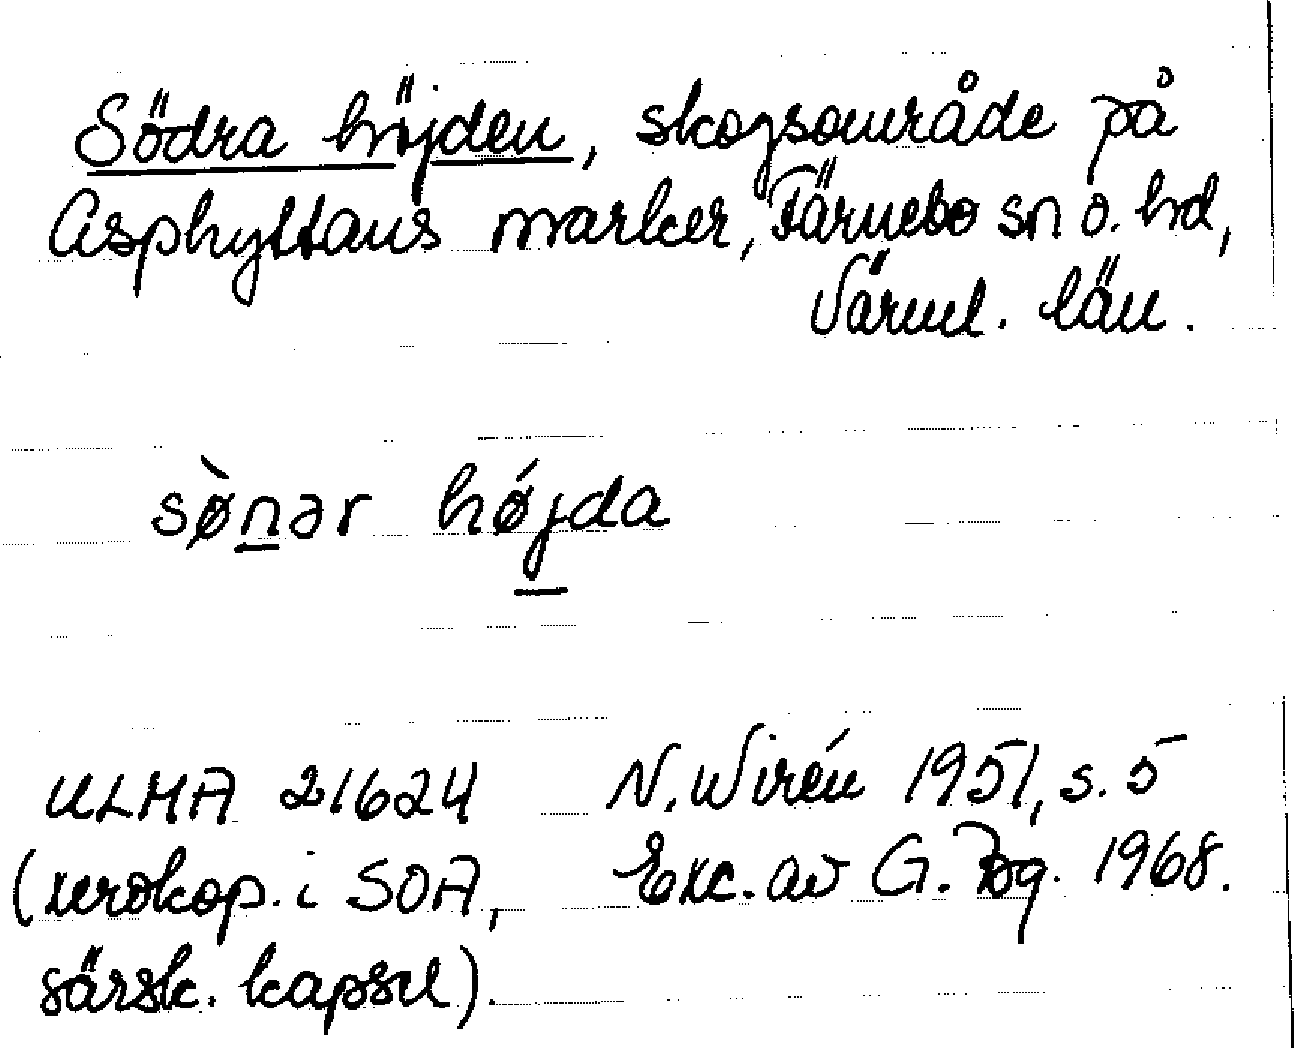 Södra höjden, skogsområde på
Asphyttans marker, Färnebo sn o. hd,
Värml. län.
sø̀nər hǿjda
ULMA 21624 N. Wirén 1951, s. 5
(xerokop. i SOA, Exc. av G. Bg. 1968.
särsk. kapsel).